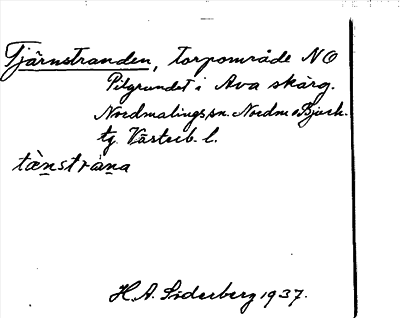 Tjärnstranden, torpområde NO
Pilgrundet i Ava skärg.
Nordmalings sn. Nordm o Bjurh.
tg. Västerb. l.
tæ̀nstràna
H.A. Söderberg 1937.